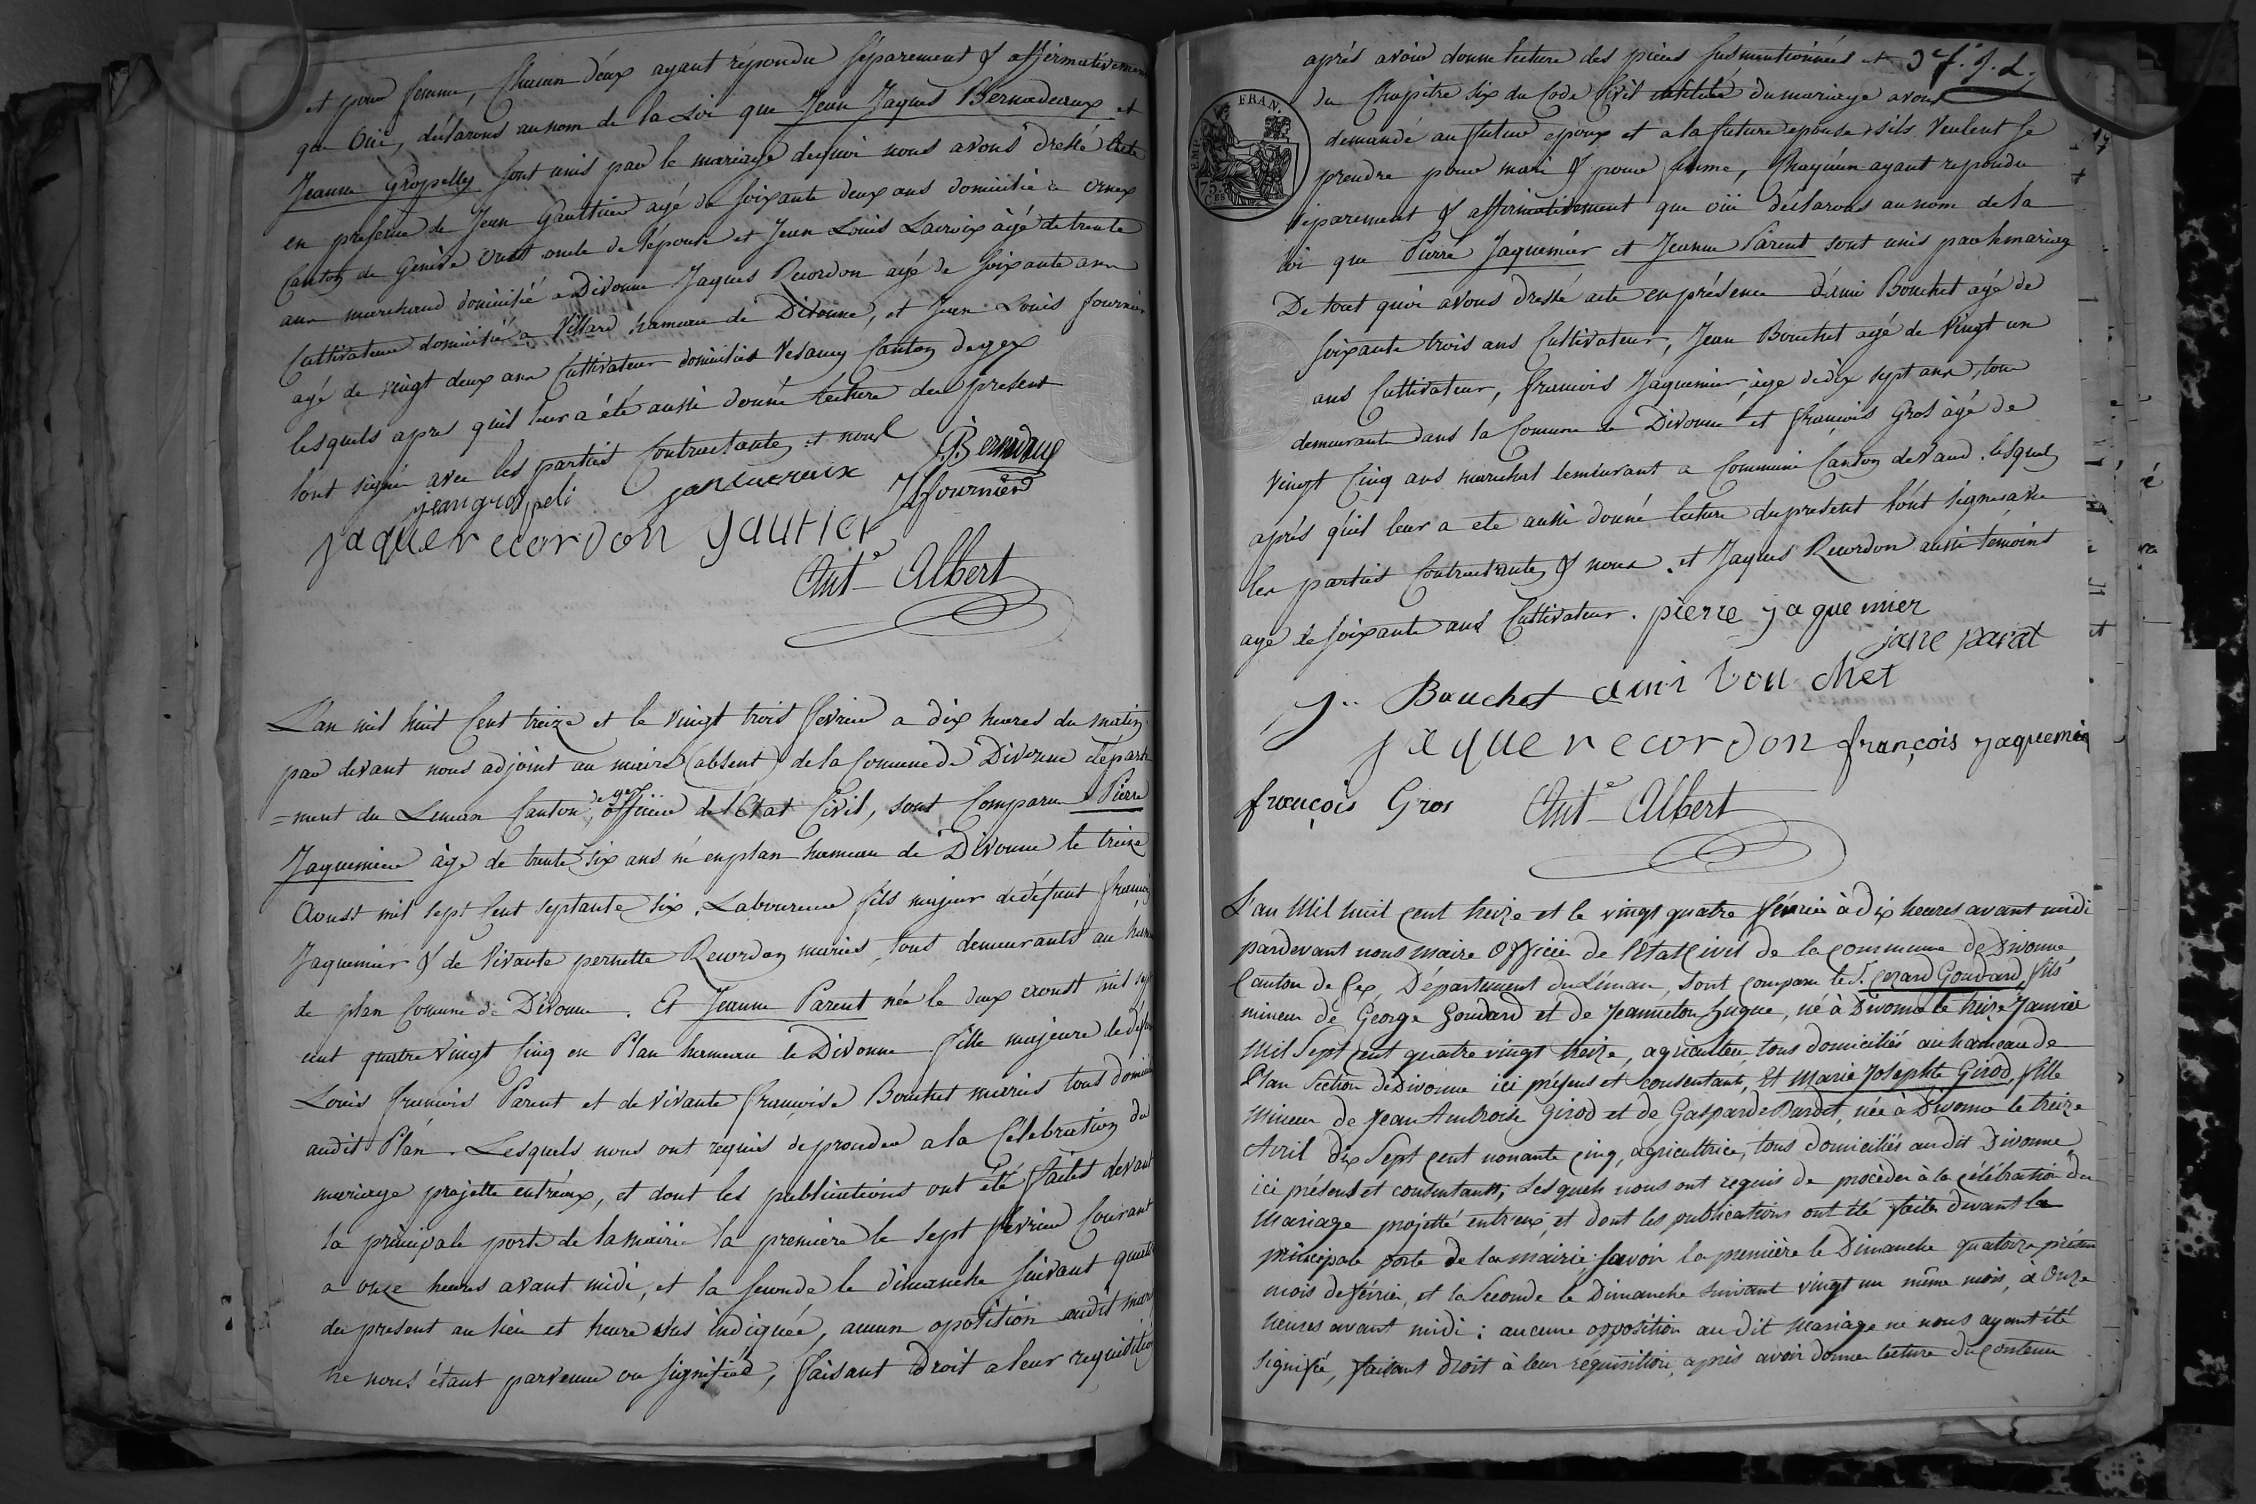 et pour femme, Chacun d'eux ayant répondu séparement & affirmativement
que Oui, déclarons au nom de la Loi que Jean Jaques Bernadeaux et
Jeanne Gropelly sont unis par le mariage de quoi nous avons dressé Acte
en presence de Jean Gaulthier agé de soixante deux ans domicilié a Ornex
Canton de Genève oncle de l'épouse et Jean Louis Lacroix âgé de trente
ans marchand domicilié a Divonne Jaques Recordon agé de soixante ans
Cultivateur domicilié a Villard hameau de Divonne, et Jean Louis fournier
agé de vingt deux ans Cultivateur domicilié a Vesancy Canton de gex
lesquels apres qu'il leur a été aussi donné lecture du present
l'ont signé avec les parties Contractantes et nous
JBernadeaux
jean gropeli jean lacroix JLfournier
jaque recordon gautier
Ant.e Albert
L'an mil huit Cent treize et le vingt trois fevrier a dix heures du matin
par devant nous adjoint au maire (absent) de la Commune de Divonne départe
=ment du Leman Canton de gex, officier de l'Etat Civil, sont Comparu Pierre
Jaquemier âgé de trente six ans né en plan hameau de Divonne le treize
Aoust mil sept Cent septante six, Laboureur fils majeur de défunt françois
Jaquemier & de vivante pernette Recordon mariés, tous demeurants au hameau
de plan Comune de Divonne. Et Jeanne Parent née le deux aoust mil sept
cent quatre vingt Cinq en Plan hameau de Divonne fille majeure de défunt
Louis françois Parent et de vivante françoise Bouchet mariés tous domiciliés
audit Plan. Lesquels nous ont requis de proceder a la Célébration du
mariage projetté entr'eux, et dont les publications ont été faites devant
la principale porte de la mairie la premiere le sept février Courant
a onze heures avant midi, et la seconde le dimanche suivant quatorze
du present au lieu et heure sus indiquée, aucun oposition audit mariage
ne nous étant parvenue ou signifiée, faisant droit a leur requisition
après avoir donné lecture des pièces susmentionnées et
du Chapitre six du Code Civil intitulé du mariage avons
demandé au futur epoux et a la future epouse s'ils veulent se
prendre pour mari & pour femme, Chaqu'un ayant repondu
séparement & affirmativement que oüi déclarons au nom de la
loi que Pierre Jaquemier et Jeanne Parent sont unis par le mariage
De tout quoi avons dressé acte en présence d'ami Bouchet agé de
soixante trois ans Cultivateur, Jean Bouchet agé de vingt un
ans Cultivateur, francois Jaquemier, âgé de dix sept ans, tous
demeurants dans la Comune de Divonne et françois Gros âgé de
vingt Cinq ans marechal demeurant a Canton de Vaud. lesquels
après qu'il leur a ete aussi donné lecture du present l'ont signé avec
les parties Contractantes & nous. et Jaques Recordon aussi temoins
age de soixante ans Cultivateur. pierre jaquemier
jane parat
J.. Bouchet ami bouchet
jaque recordon françois jaquemier
françois Gros Ant.e Albert
L'an Mil huit cent treize et le vingt quatre février à dix heures avant midi
pardevant nous maire officier de l'état civil de la commune de Divonne
Canton de Gex, Département du Léman, sont comparu le S.r Cezard Goudard, fils
mineur de George Goudard et de Jeanneton hugue, né à Divonne le treize Janvier
mil sept cent quatre vingt treize, agriculteur tous domiciliés au hameau de
Plan Section de Divonne ici présens et consentant, Et Marie Josephte Girod, fille
mineur de Jean Ambroise Girod et de Gasparde Dardet, née à Divonne le treize
Avril dix sept cent nonante cinq, agricultrice, tous domiciliés au dit Divonne
ici présens et consentants; Lesquels nous ont requis de procéder à la célébration du
Mariage projetté entr'eux, et dont les publications ont été faites devant la
principale porte de la mairie; savoir la première le Dimanche quatorze présen
mois de février, et la seconde le Dimanche suivant vingt un même mois, à onze
heures avant midi; aucune opposition au dit Mariage ne nous ayant été
signifié, faisant droit à leur réquisition, après avoir donné lecture du contenu